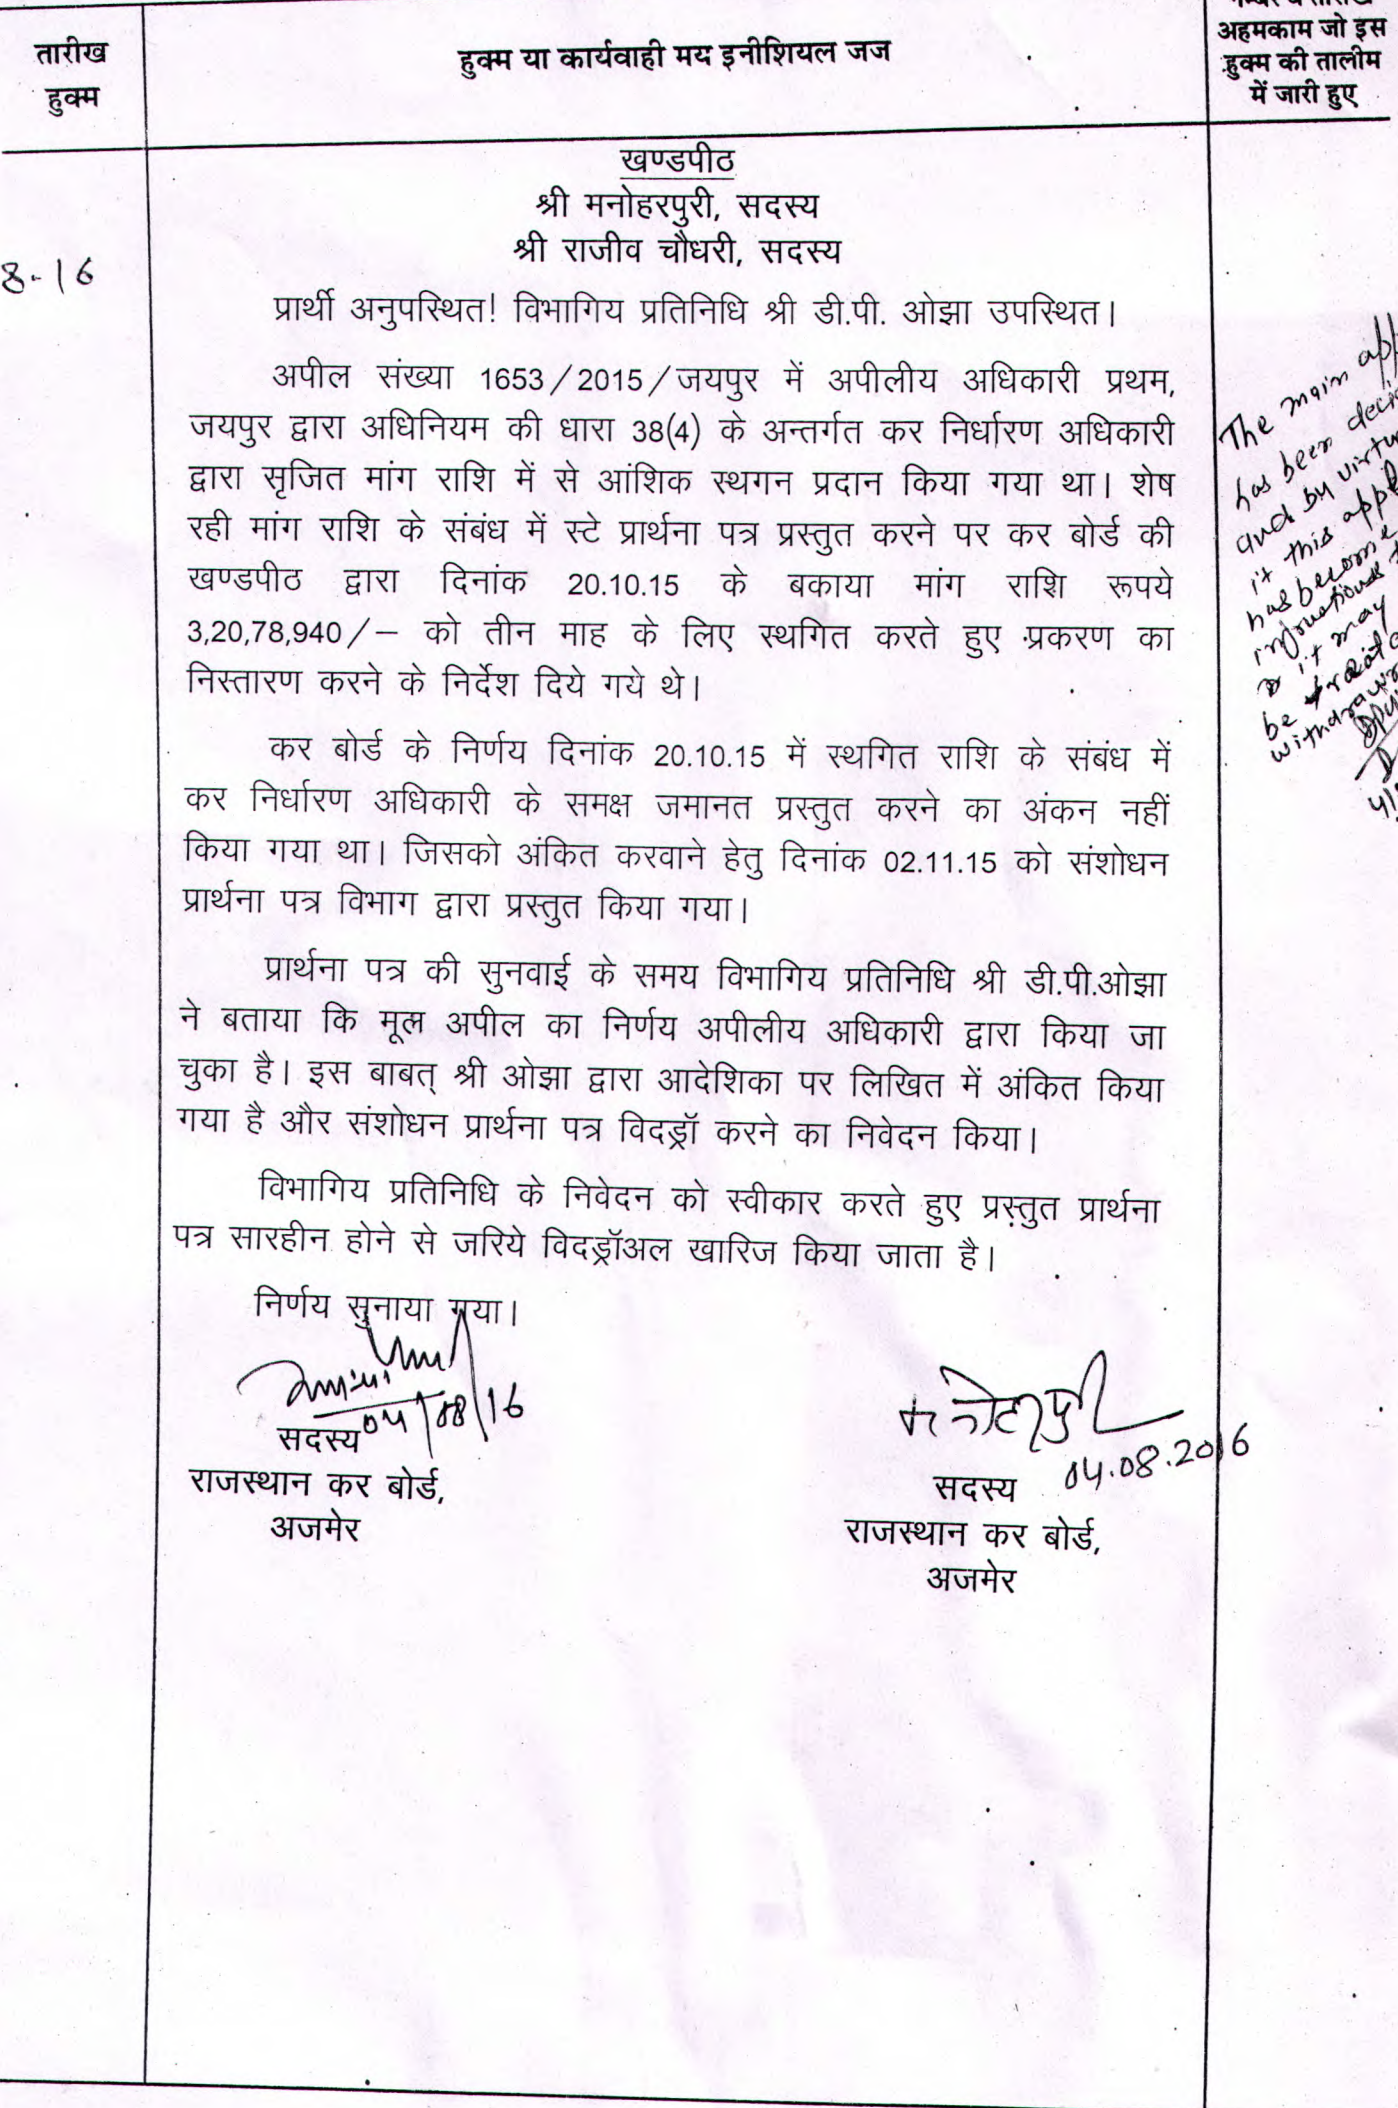 तारीख
हुक्म
हुक्म या कार्यवाही मय इनीशियल जज
अहमकाम जो इस
हुक्म की तालीम
में जारी हुए
खण्डपीठ
श्री मनोहरपुरी, सदस्य
श्री राजीव चौधरी, सदस्य
8-16
प्रार्थी अनुपस्थित! विभागिय प्रतिनिधि श्री डी.पी. ओझा उपस्थित।
अपील संख्या 1653/2015/जयपुर में अपीलीय अधिकारी प्रथम,
जयपुर द्वारा अधिनियम की धारा 38(4) के अन्तर्गत कर निर्धारण अधिकारी
द्वारा सृजित मांग राशि में से आंशिक स्थगन प्रदान किया गया था। शेष
रही मांग राशि के संबंध में स्टे प्रार्थना पत्र प्रस्तुत करने पर कर बोर्ड की
खण्डपीठ द्वारा दिनांक 20.10.15 के बकाया मांग राशि रूपये
3,20,78,940/– को तीन माह के लिए स्थगित करते हुए प्रकरण का
निस्तारण करने के निर्देश दिये गये थे।
कर बोर्ड के निर्णय दिनांक 20.10.15 में स्थगित राशि के संबंध में
कर निर्धारण अधिकारी के समक्ष जमानत प्रस्तुत करने का अंकन नहीं
किया गया था। जिसको अंकित करवाने हेतु दिनांक 02.11.15 को संशोधन
प्रार्थना पत्र विभाग द्वारा प्रस्तुत किया गया।
प्रार्थना पत्र की सुनवाई के समय विभागिय प्रतिनिधि श्री डी.पी.ओझा
ने बताया कि मूल अपील का निर्णय अपीलीय अधिकारी द्वारा किया जा
चुका है। इस बाबत् श्री ओझा द्वारा आदेशिका पर लिखित में अंकित किया
गया है और संशोधन प्रार्थना पत्र विदड्रॉ करने का निवेदन किया।
विभागिय प्रतिनिधि के निवेदन को स्वीकार करते हुए प्रस्तुत प्रार्थना
पत्र सारहीन होने से जरिये विदड्रॉअल खारिज किया जाता है।
निर्णय सुनाया गया।
04/08/16
सदस्य
राजस्थान कर बोर्ड,
अजमेर
मनोहरपुरी
04.08.2016
सदस्य
राजस्थान कर बोर्ड,
अजमेर
The main
has been
and by
it this
has become
it may
be